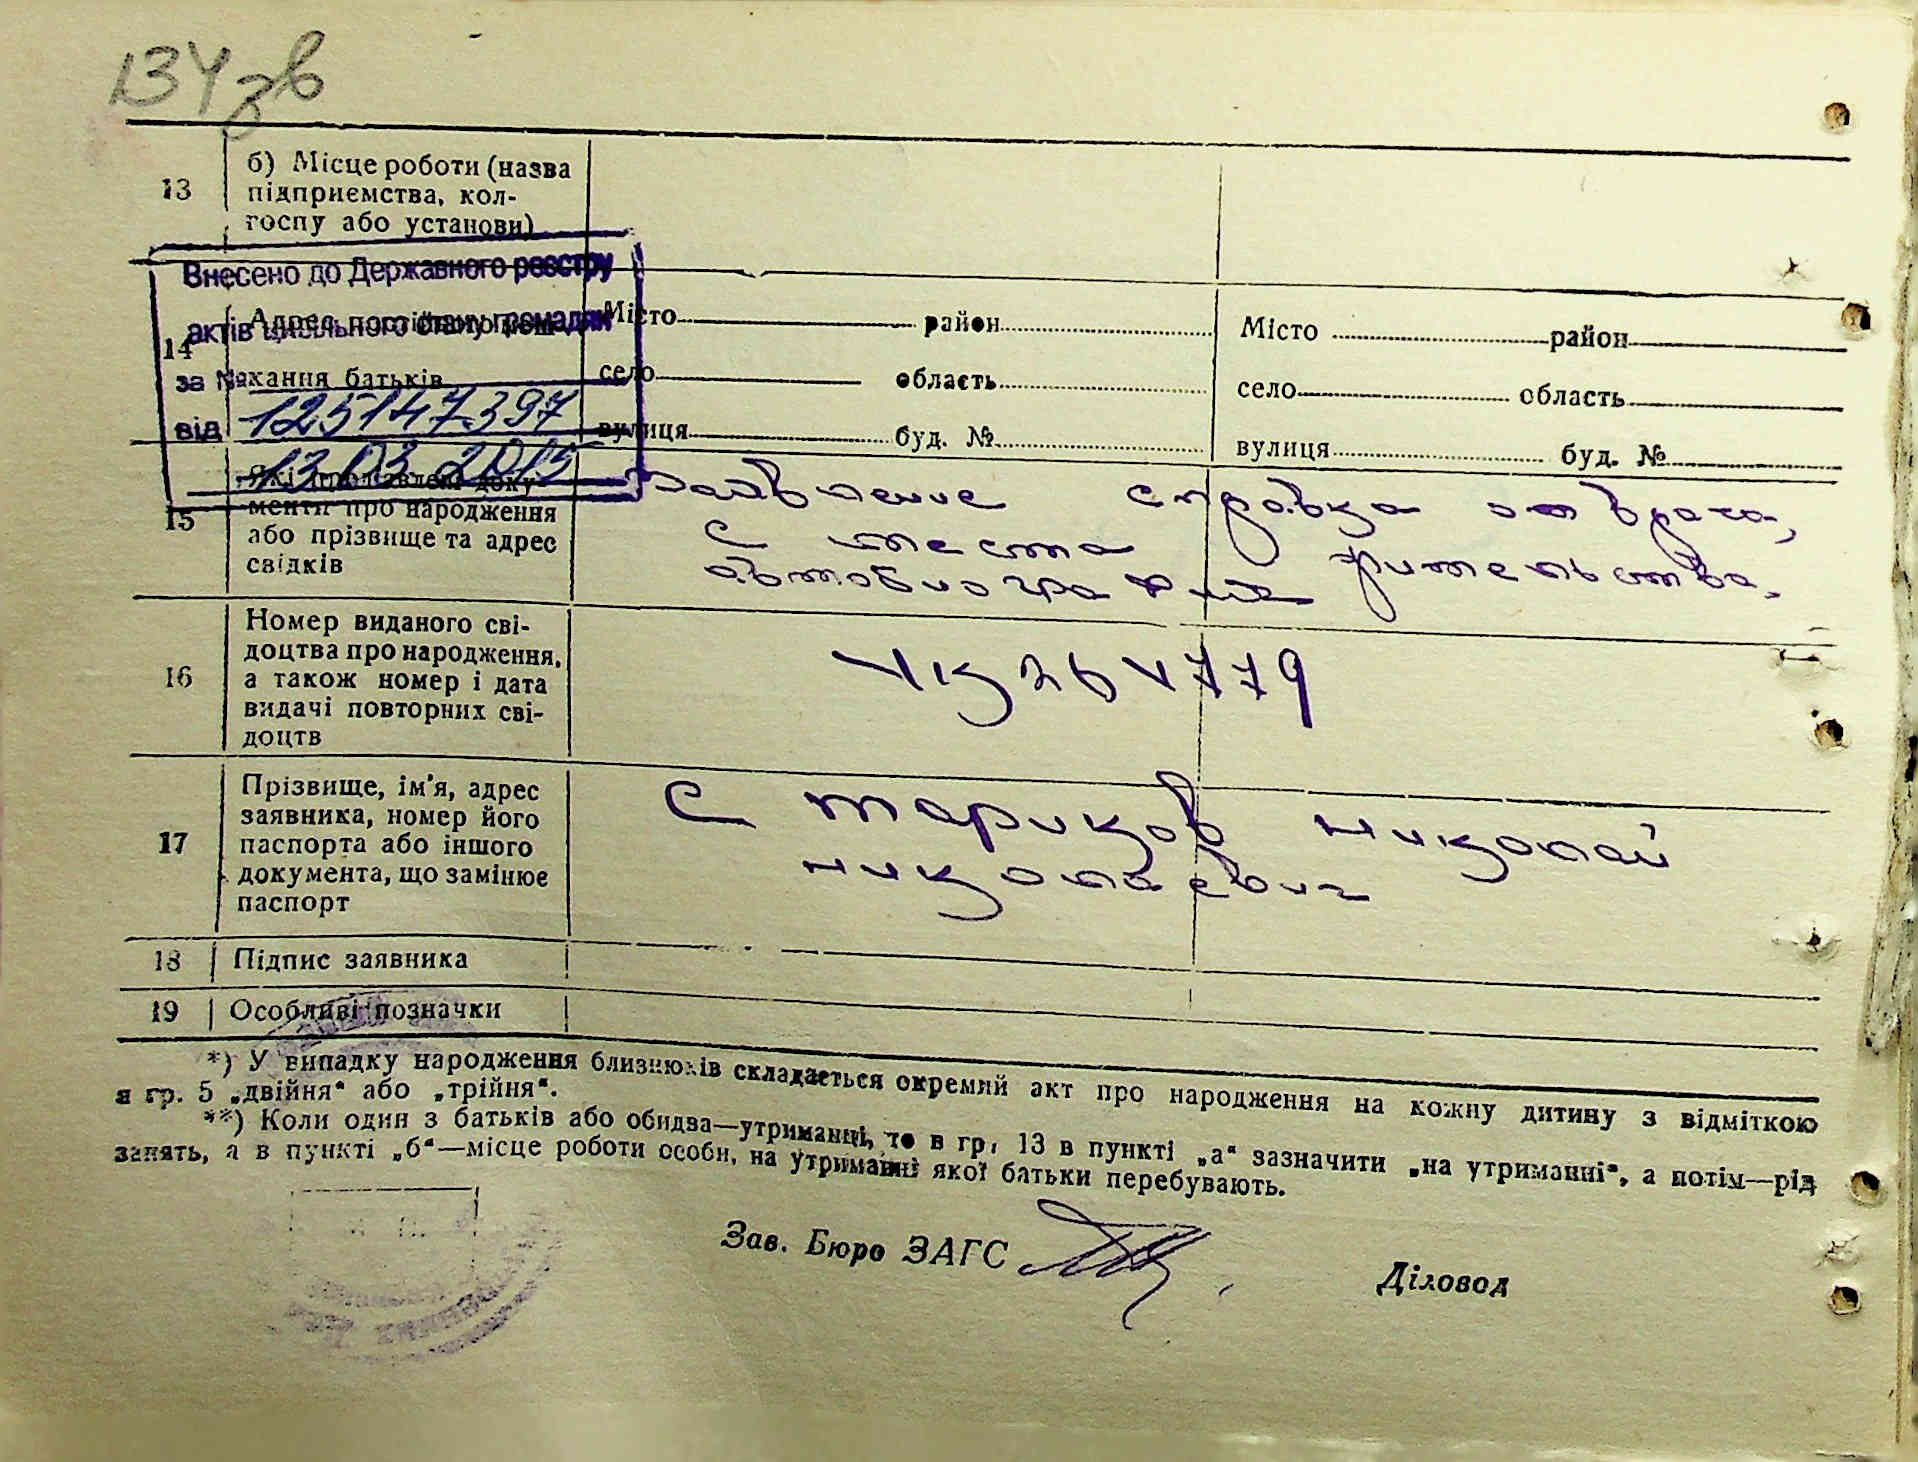 134 зв
13 б) Місце роботи (назва
підприємства, кол-
госпу або установи)
Внесено до Державного реєстру
актів цивільного стану громадян
за №
125147397
від 13.03.2015
14 Адрес постійного меш-
кання батьків
Місто район Місто район
село область село область
вулиця буд. № вулиця буд. №
15 Які представлені доку-
менти про народження
або прізвище та адрес
свідків
Заявление справка от врача,
с места жительства,
автобиография
16 Номер виданого сві-
доцтва про народження,
а також номер і дата
видачі повторних сві-
доцтв
17 Прізвище, ім'я, адрес
заявника, номер його
паспорта або іншого
документа, що замінює
паспорт
Стариков Николай
Николаевич
18 Підпис заявника
19 Особливі позначки
*) У випадку народження близнюків складається окремий акт про народження на кожну дитину з відміткою
в гр. 5 „двійня“ або „трійня“.
**) Коли один з батьків або обидва—утриманці, то в гр. 13 в пункті „а“ зазначити „на утриманні“, а потім—рід
занять, а в пункті „б“—місце роботи особи, на утриманні якої батьки перебувають.
Зав. Бюро ЗАГС
Діловод